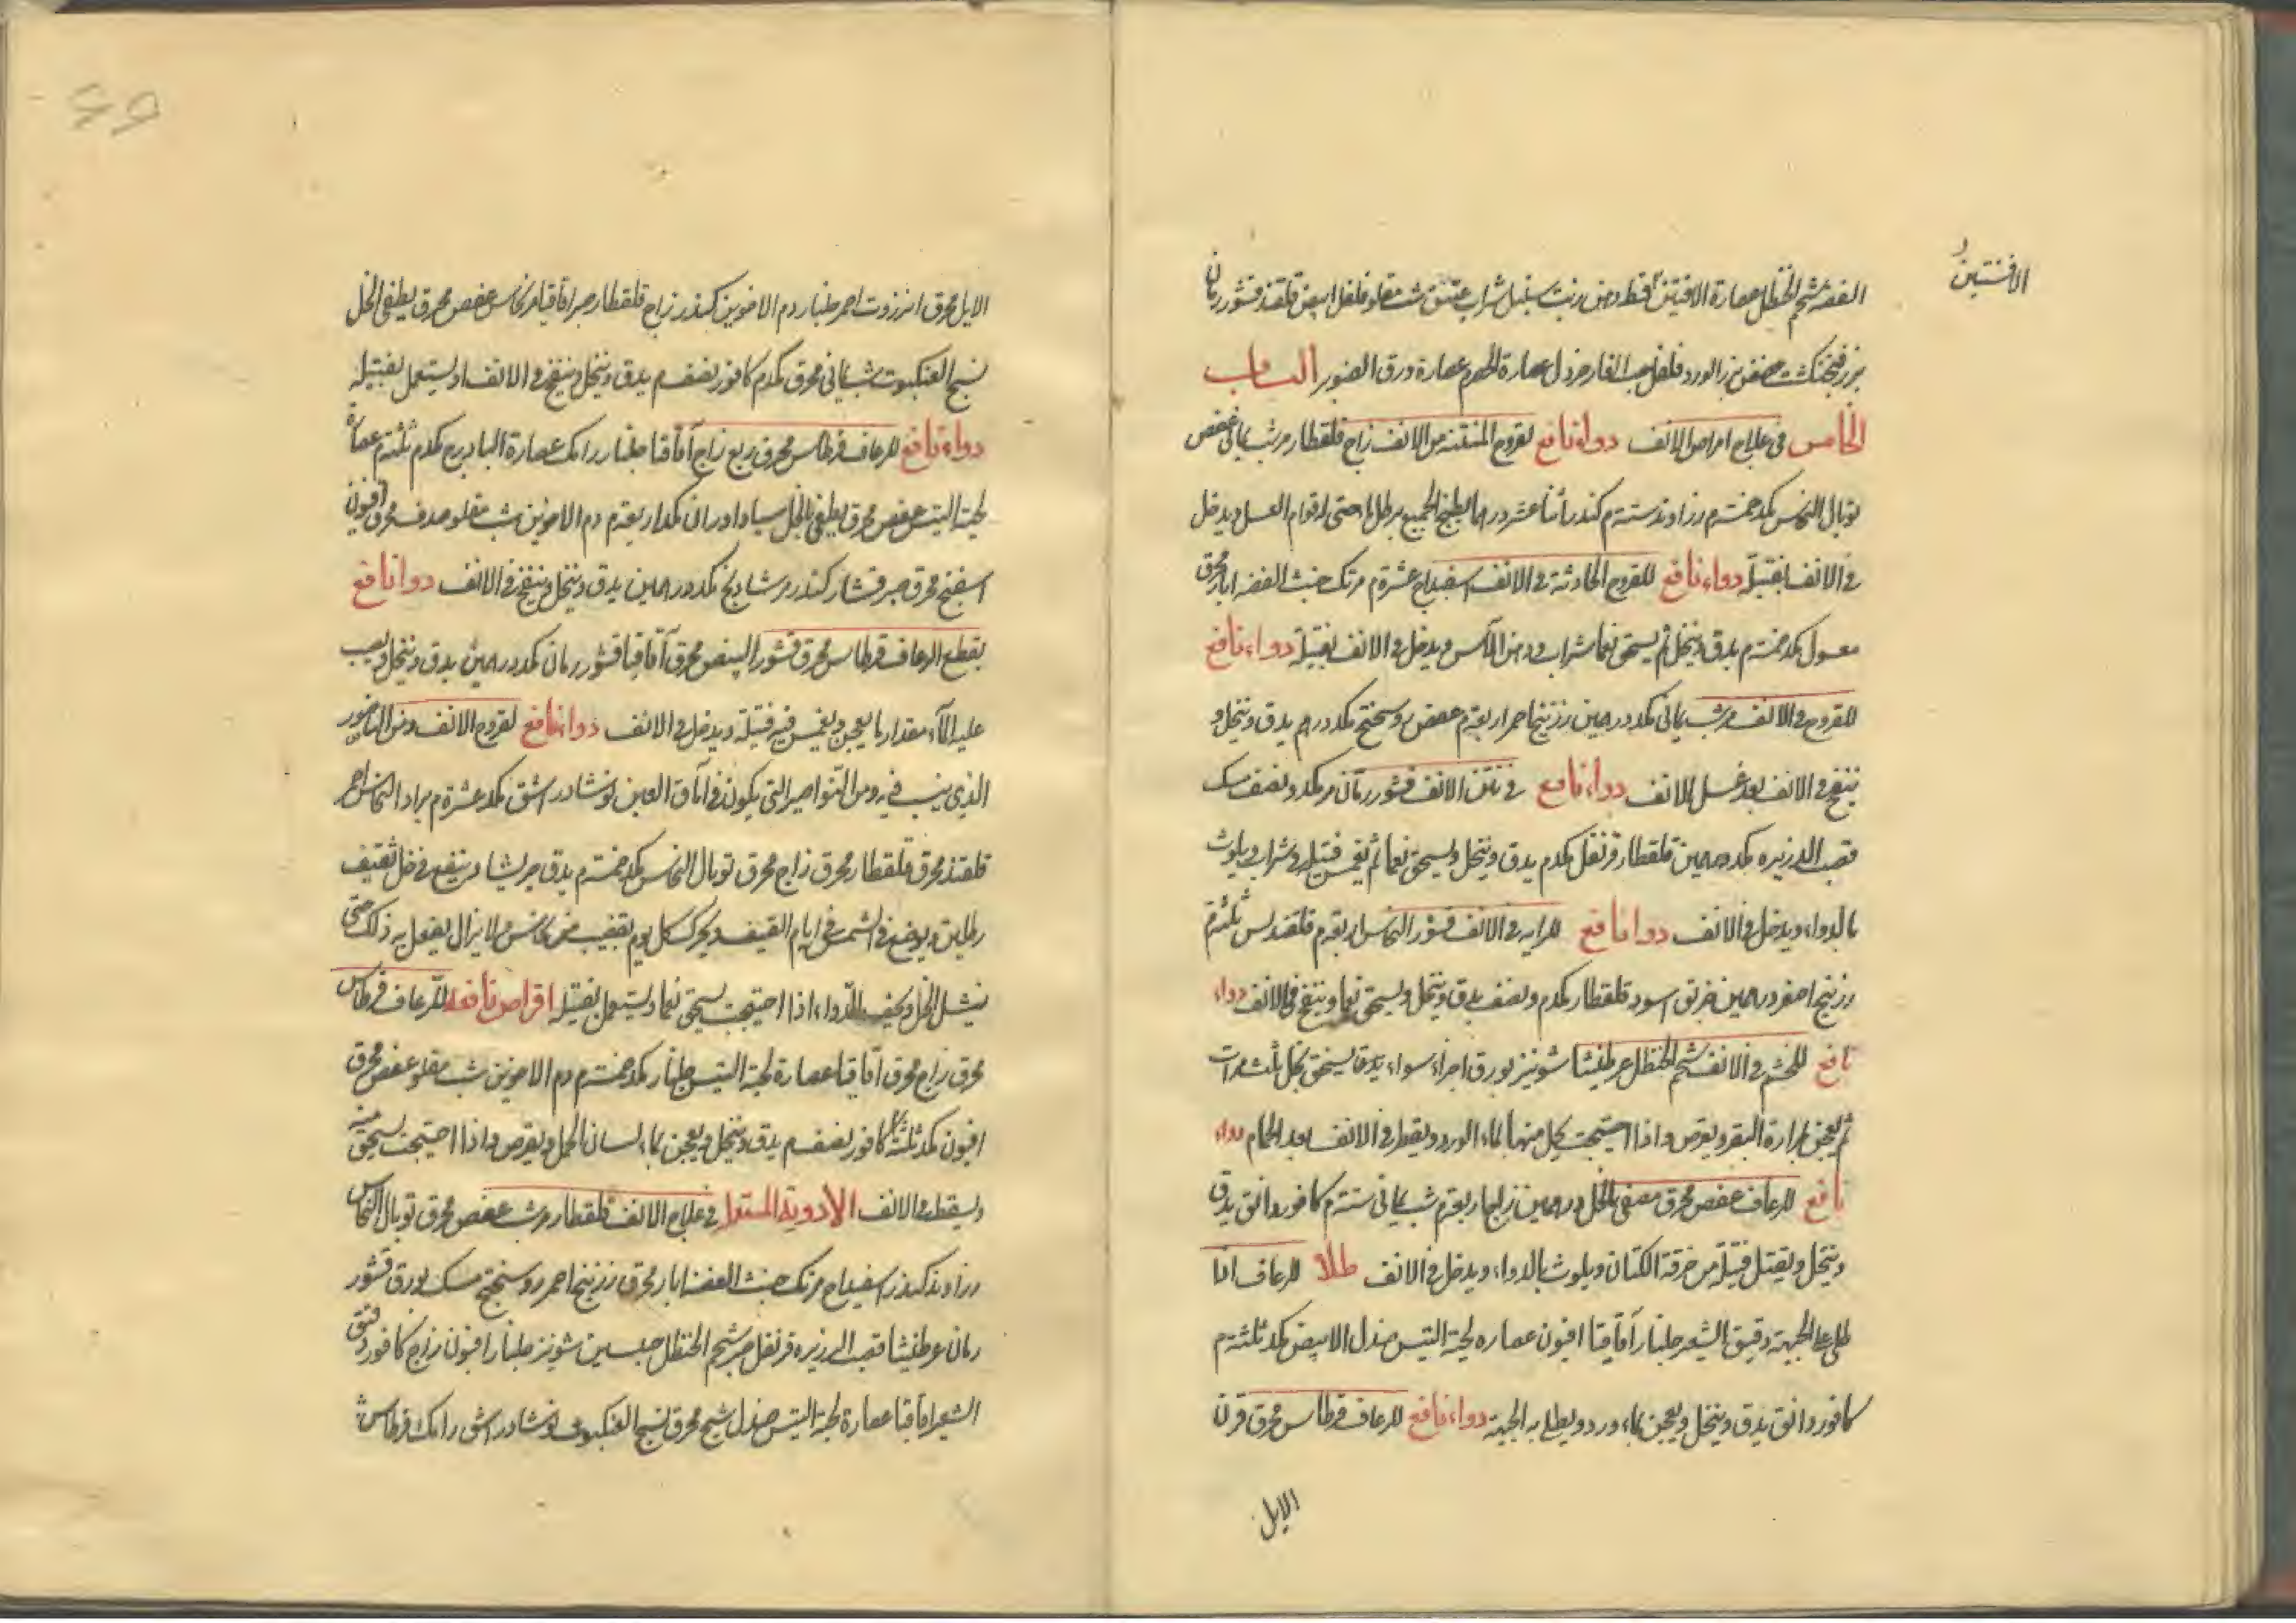 الافسنتين
الفضة شحم الحنظل عصارة الافسنتين قسط دهن زيت سنبل شراب عتيق شب مقلو فلفل ابيض قلقند قشور رمان
بزر فنجنكشت عفص بزر الورد فلفل حب الغار خردل عصارة الحصرم عصارة ورق الصنوبر الباب
الخامس في علاج امراض الانف دواء نافع لقروح المنتنة من الانف زاج قلقطار مر شب يماني عفص
توبال النحاس مكد خمسة م زراوند ستة م كندر اثنا عشر درهما يطبخ الجميع برطل ما حتى له قوام العسل ويدخل
في الانف بفتيلة دواء نافع للقروح الحادثة في الانف اسفيداج عشرة م مرتك خبث الفضة ابار محرق
مغسول مكد خمسة م يدق وينخل ثم يسحق نعما شراب ودهن الآس ويدخل في الانف بفتيلة دواء نافع
للقروح في الانف مر شب يماني مكد درهمين زرنيخ احمر اربعة م عفص روسختج مكد درهم يدق وينخل و
ينفخ في الانف بعد غسل الانف دواء نافع في نتن الانف قشور رمان مر مكد ونصف مسك
قصب الذريره مكد درهمين قلقطار قرنفل مكد م يدق وينخل ويسحق نعما ثم يغمس فتيلة في شراب ويلوث
بالدواء ويدخل في الانف دوا نافع للرايه في الانف قشور النحاس اربعة م قلقديس ثلثة م
زرنيخ اصفر درهمين خربق اسود قلقطار مكد م ونصف يدق وينخل ويسحق نعما وينفخ في الانف دواء
نافع للخشم في الانف شحم الحنظل عرطنيثا شونيز بورق اجزاء سواء يدق يسحق بخل ثلث مرات
ثم يعجن بمرارة البقر ويقرص واذا احتيجت يحل منها بماء الورد ويقطر في الانف بعد الحمام دواء
نافع للرعاف عفص محرق مطفى بالخل درهمين زاج اربعة م شب يماني ستة م كافور دانق يدق
وينخل ويفتل فتيلة من خرقة الكتان ويلوث بالدواء ويدخل في الانف طلا للرعاف اذا
طلي على الجبهة دقيق الشعير جلنار آقاقيا افيون عصاره لحية التيس صندل الابيض مكد ثلثة م
كافور دانق يدق وينخل ويعجن بماء ورد ويطلى به الجبهة دواء نافع للرعاف قرطاس محرق قرن
الايل
الايل محرق انزروت احمر جلنار دم الاخوين كندر زاج قلقطار صبر اقاقيا عفص محرق يطفى الخل
نسج العنكبوت شب يماني محرق مكد م كافور نصف م يدق وينخل وينفخ في الانف او يستعمل بفتيلة
دواء نافع للرعاف قرطاس محرق ربع زاج آقاقيا جلنار رامك عصارة البادروج مكد م ثلثة م عصارة
لحية التيس عفص محرق يطفى بالخل مكد اربعة م دم الاخوين شب مقلو صدف محرق افيون
اسفنج محرق صبر قشار كندر مر شادنج مكد درهمين يدق وينخل وينفخ في الانف دوا نافع
يقطع الرعاف قرطاس محرق قشور البيض محرق آقاقيا قشور رمان مكد درهمين يدق وينخل ويصب
عليه الماء مقدار ما يعجن ويغمس فيه فتيلة ويدخل في الانف دواء نافع لقروح الانف ومن الناصور
الذي ينبت فيه ومن النواصير التي يكون في آماق العين نوشادر اشق مكد عشرة م براد النحاس احمر
قلقند محرق قلقطار محرق زاج محرق توبال النحاس مكد خمسة م يدق جريشا وينقع في خل ثقيف
رطلين ويوضع في الشمس في ايام القيض ويحرك كل يوم بقضيب من نحاس ولا يزال يفعل به ذلك حتى
ينشل الخل ويجف الدواء اذا احتيجت يسحق نعما ويستعمل بفتيلة اقراص نافعة للرعاف قرطاس
محرق زاج محرق آقاقيا عصارة لحية التيس جلنار مكد خمسة م دم الاخوين شب مقلو عفص محرق
افيون مكد ثلثة كافور نصف م يدق وينخل ويعجن بماء لسان الحمل ويقرص واذا احتيجت يسحق منه
ويسقط في الانف الادوية المستعملة في علاج الانف قلقطار مر شب عفص محرق توبال النحاس
زراوند كندر اسفيداج مرتك خبث الفضة ابار محرق زرنيخ احمر روسختج مسك بورق قشور
رمان عرطنيثا قصب الذريره قرنفل صبر شحم الحنظل شونيز جلنار افيون زاج كافور دقيق
الشعير اقاقيا عصارة لحية التيس صندل شيح محرق نسج العنكبوت نوشادر اشق رامك قرطاس